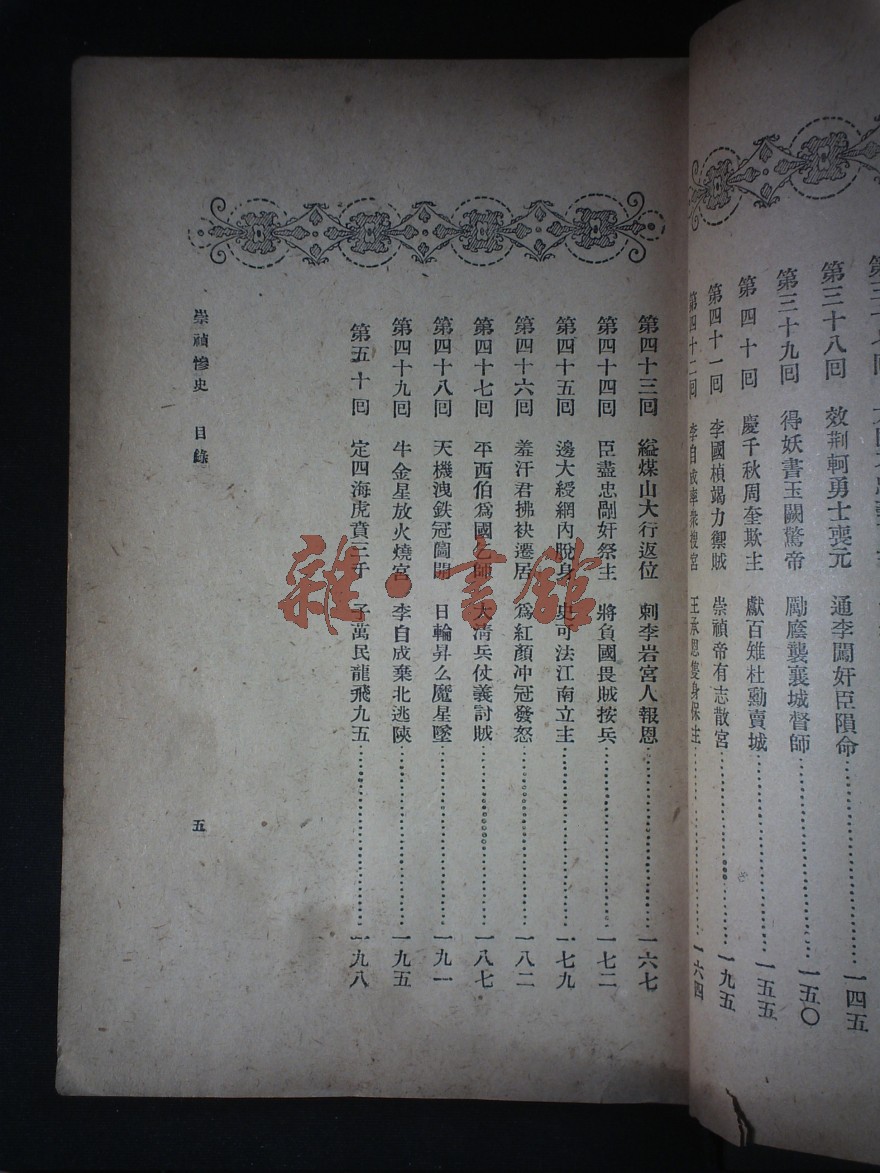 第三十八回 效荆軻勇士喪元 通李闖奸臣隕命 一四五
第三十九回 得妖書玉闕驚帝 勵廕襲襄城督師 一五〇
第四十回 慶千秋周奎欺主 獻百雉杜勳賣城 一五五
第四十一回 李國楨竭力禦賊 崇禎帝有志散宮 一九五
第四十二回 李自成率衆搜宮 王承恩隻身保主 一六四
第四十三回 縊煤山大行返位 刺李岩宮人報恩 一六七
第四十四回 臣盡忠剮奸祭主 將負國畏賊按兵 一七二
第四十五回 邊大綬網內脫身 史可法江南立主 一七九
第四十六回 羞汗君拂袂遷居 爲紅顏冲冠發怒 一八二
第四十七回 平西伯爲國乞師 大淸兵仗義討賊 一八七
第四十八回 天機洩鉄冠圖開 日輪昇么魔星墜 一九一
第四十九回 牛金星放火燒宮 李自成棄北逃陝 一九五
第五十回 定四海虎賁三千 子萬民龍飛九五 一九八
崇禎慘史 目錄 五
雜·書館